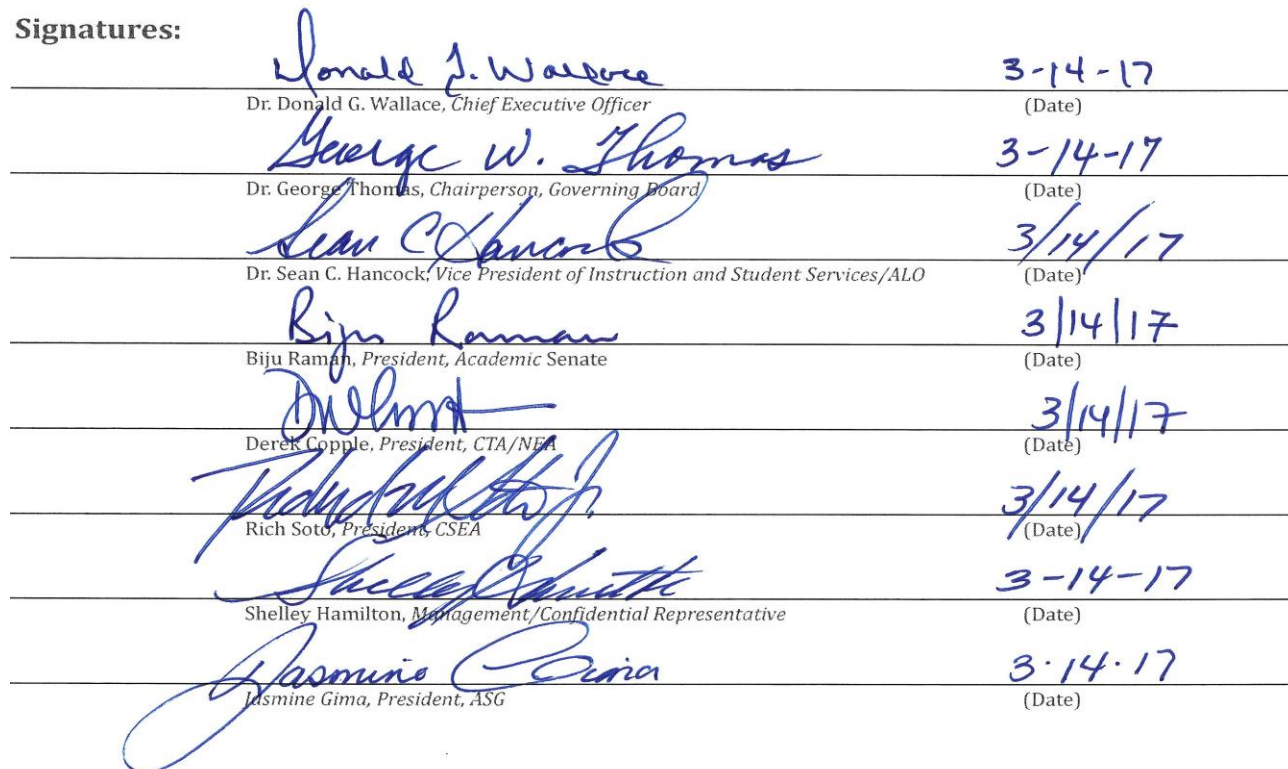 Signatures:
Donald G. Wallace 3-14-17
Dr. Donald G. Wallace, Chief Executive Officer (Date)
George W. Thomas 3-14-17
Dr. George Thomas, Chairperson, Governing Board (Date)
Sean C Hancock 3/14/17
Dr. Sean C. Hancock, Vice President of Instruction and Student Services/ALO (Date)
Biju Raman 3/14/17
Biju Raman, President, Academic Senate (Date)
3/14/17
Derek Copple, President, CTA/NEA (Date)
3/14/17
Rich Soto, President, CSEA (Date)
Shelley 3-14-17
Shelley Hamilton, Management/Confidential Representative (Date)
Jasmine Gima 3.14.17
Jasmine Gima, President, ASG (Date)